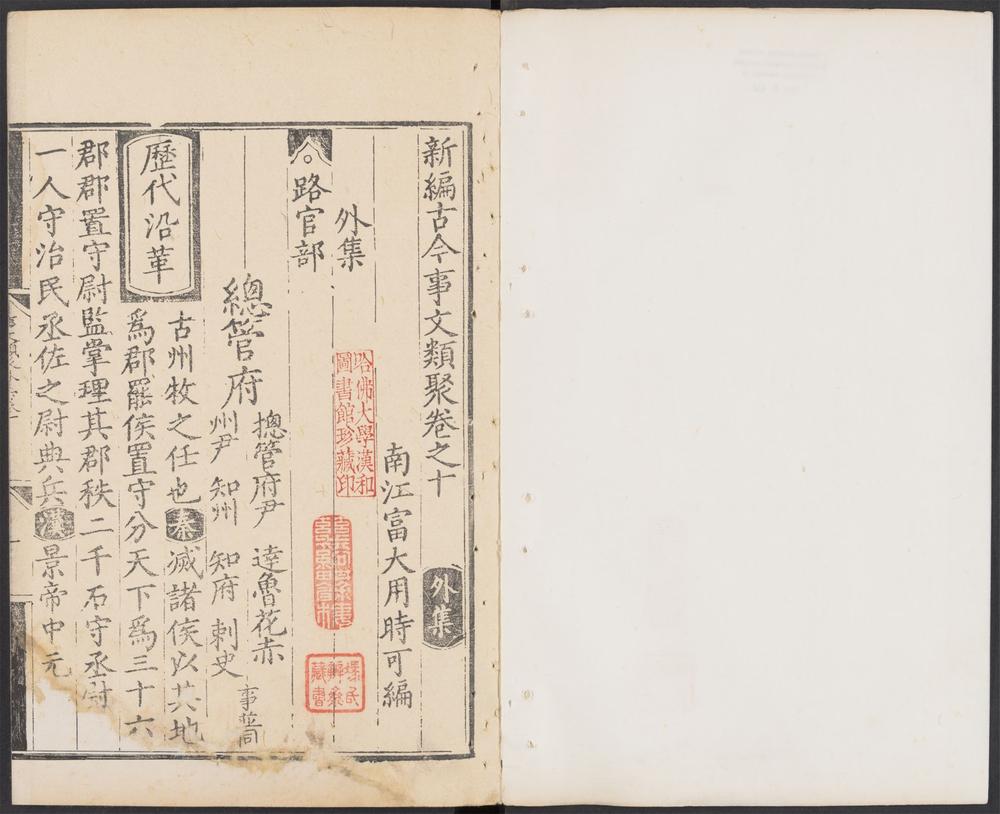 新編古今事文類聚卷之十
外集
南江富大用時可編
外集
哈佛大學漢和
圖書館珍藏印
路官部
總管府
摠管府尹 達魯花赤
州尹 知州 知府 刺史
事蓝同
歷代沿革
古州牧之任也秦滅諸侯以其地
爲郡罷侯置守分天下爲三十六
郡郡置守尉監掌理其郡秩二千石守丞尉
一人守治民丞佐之尉典兵漢景帝中元